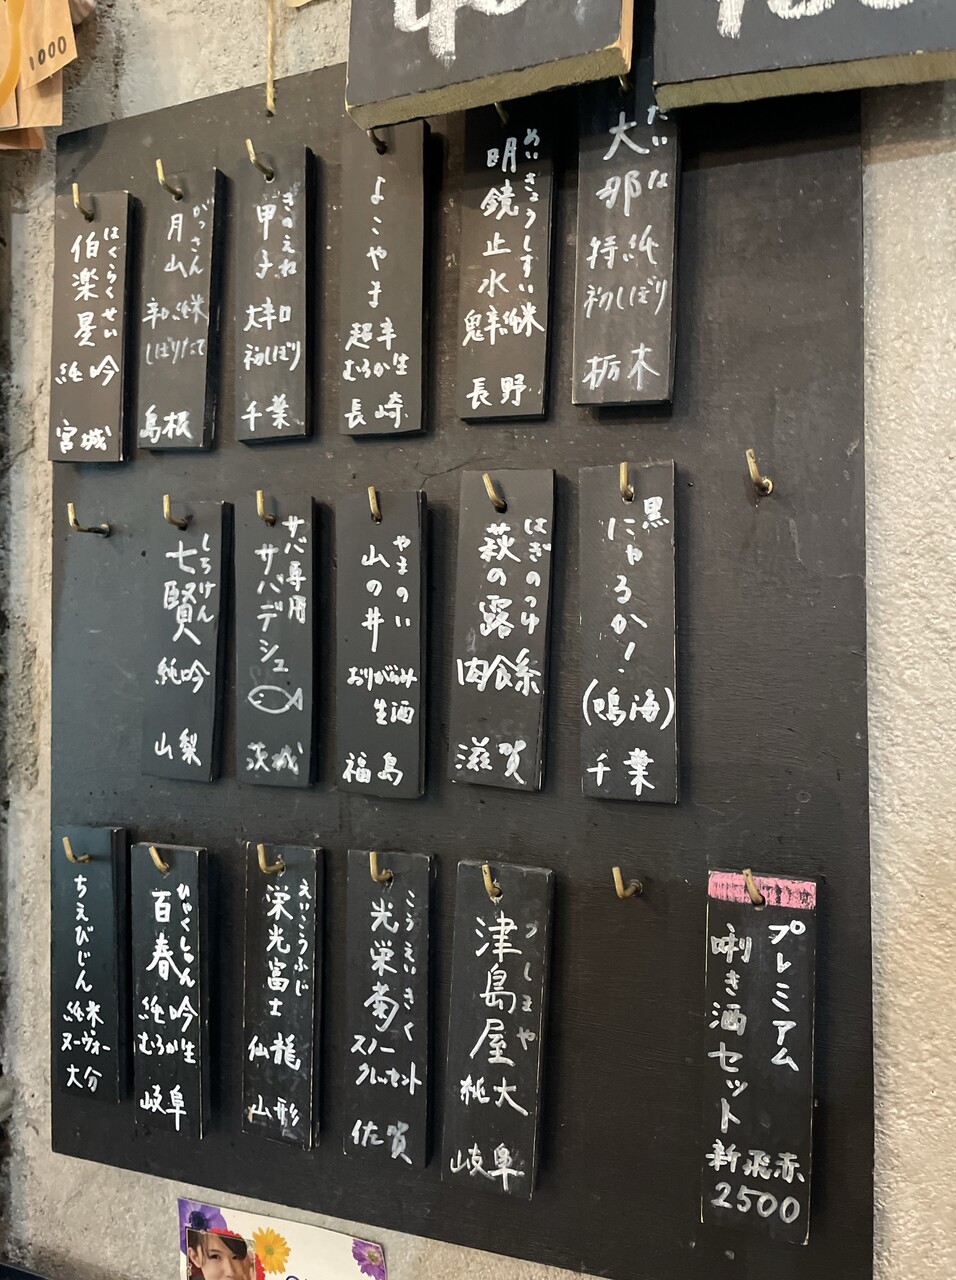 1000
大那
だいな
特純
初しぼり
栃木
明鏡止水
めいきょうしすい
鬼辛純米
長野
よこやま
超辛
むろか生
長崎
甲子
きのえね
大辛口
初しぼり
千葉
月山
がっさん
辛口純米
しぼりたて
島根
伯楽星
はくらくせい
純吟
宮城
黒
にゃるか!
(鳴海)
千葉
萩の露
はぎのつゆ
肉食系
滋賀
山の井
やまのい
おりがらみ
生酒
福島
サバ専用
サバデシュ
茨城
七賢
しちけん
純吟
山梨
プレミアム
唎き酒セット
新飛赤
2500
津島屋
つしまや
純大
岐阜
光栄菊
こうえいぎく
スノー
クレッセント
佐賀
栄光冨士
えいこうふじ
仙龍
山形
百春
ひゃくしゅん
純吟
むろか生
岐阜
ちえびじん
純米
ヌーヴォー
大分